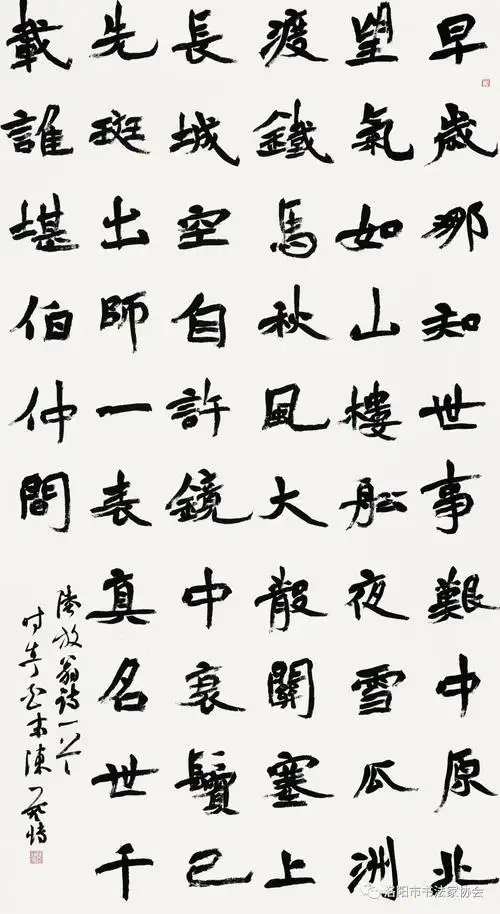 早歲那知世事艱中原北
望氣如山樓舩夜雪瓜洲
渡鐵馬秋風大散關塞上
長城空自許鏡中衰鬢已
先斑出師一表真名世千
載誰堪伯仲間
陸放翁詩一首
洛阳市书法家协会